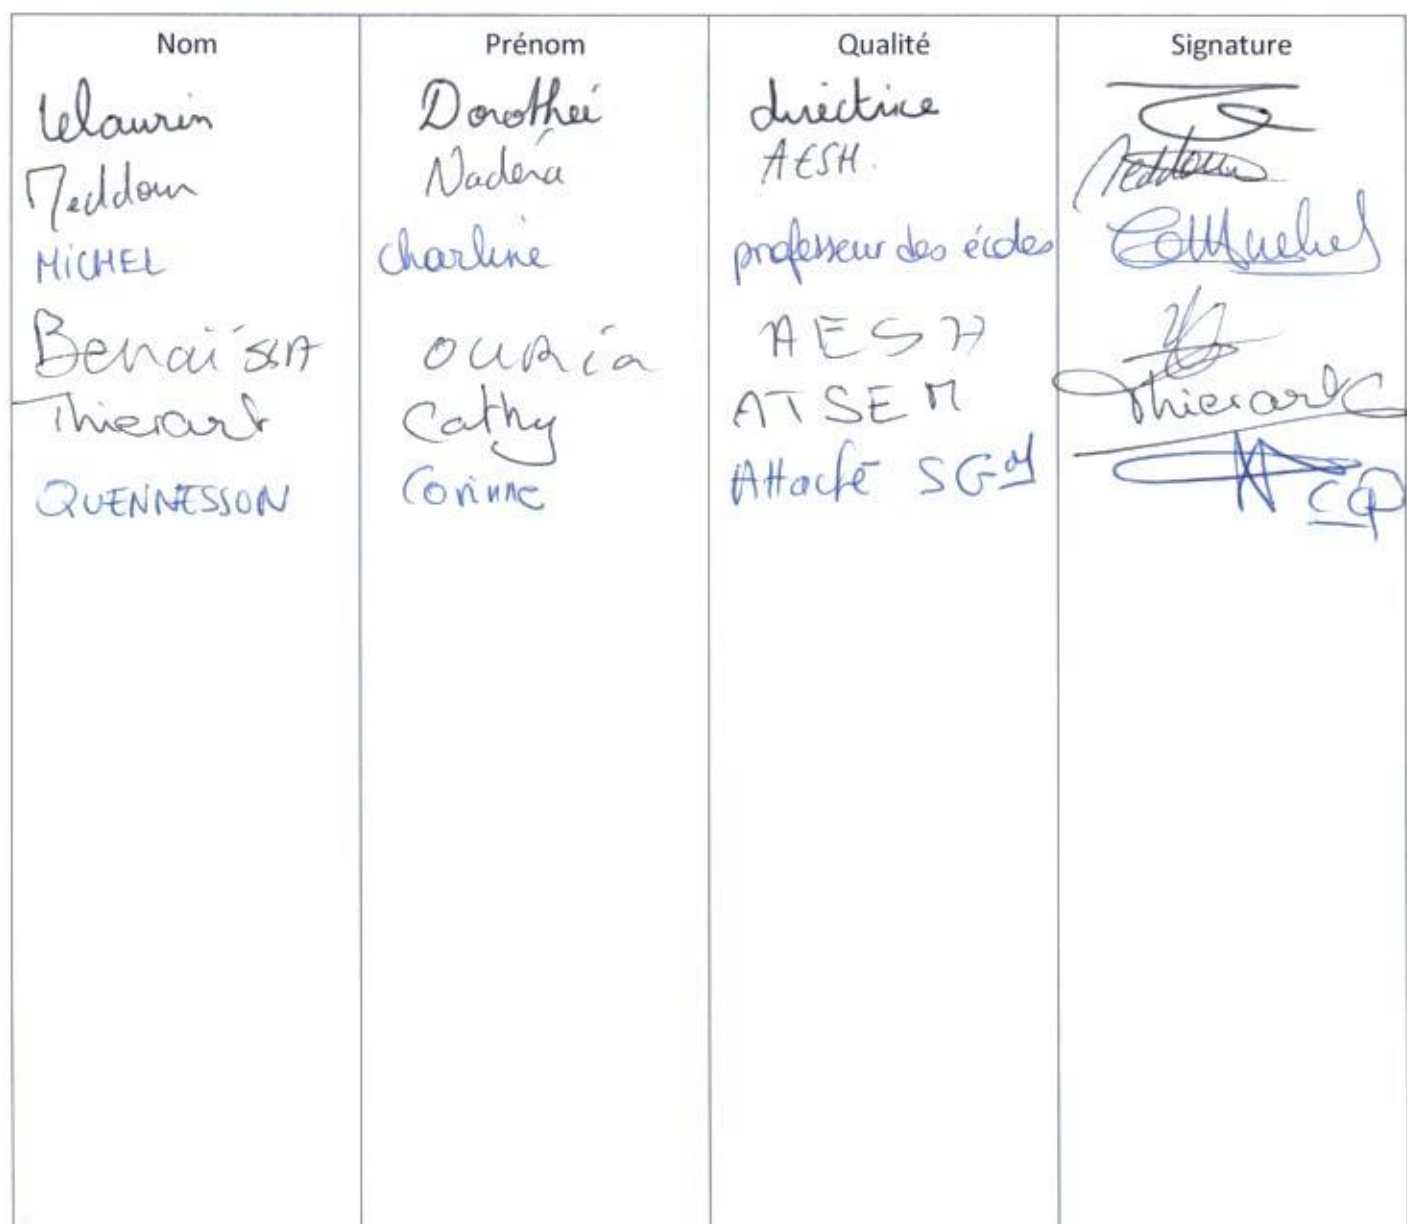 Nom Prénom Qualité Signature
Dorothée directrice
Meddour Nadéra AESH. Meddour
MICHEL Charline professeur des écoles
Benaïssa ouria AESH
Thierart Cathy ATSEM Thierart C
QUENNESSON Corinne Attaché CQ